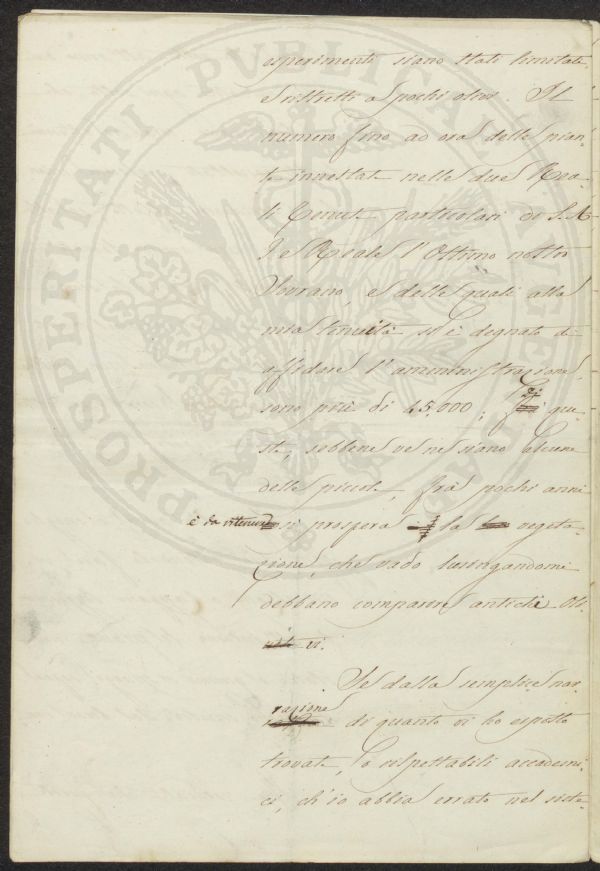 PROSPERITATI PUBLICAE AUGENDAE
esperimenti siano stati limitati
e ristretti a pochi olivi. Il
numero fino ad ora delle pian-
te innestate nelle due Rea-
li Tenute particolari di S. A.
I e Reale l'Ottimo nostro
Sovrano, e delle quali alla
mia tenuità si è degnato di
affidare l'amministrazione,
sono più di 45,000; que
ste, sebbene ve ne siano alcune
delle piccole, frà pochi anni
è da ritenersi si prospera la vegeta-
zione, che vado lusingandomi
debbano comparire antichi Oli-
vi.
Se dalla semplice nar-
razione di quanto vi ho esposto
trovate, o rispettabili accademi-
ci, ch'io abbia errato nel siste-